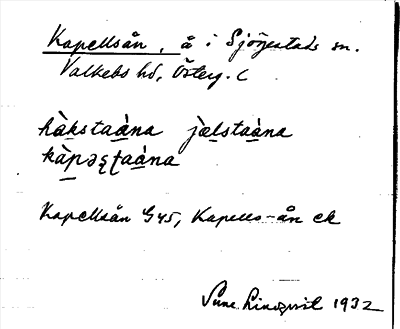 Kapellsån, å i Sjögestads sn.
Valkebs hd, Österg. (
hàkstaàna jæ̀lstaàna
kàpəʂʈaàna
Kapellsån G 45, Kapells-ån ek
Sune Lindqvist 1932